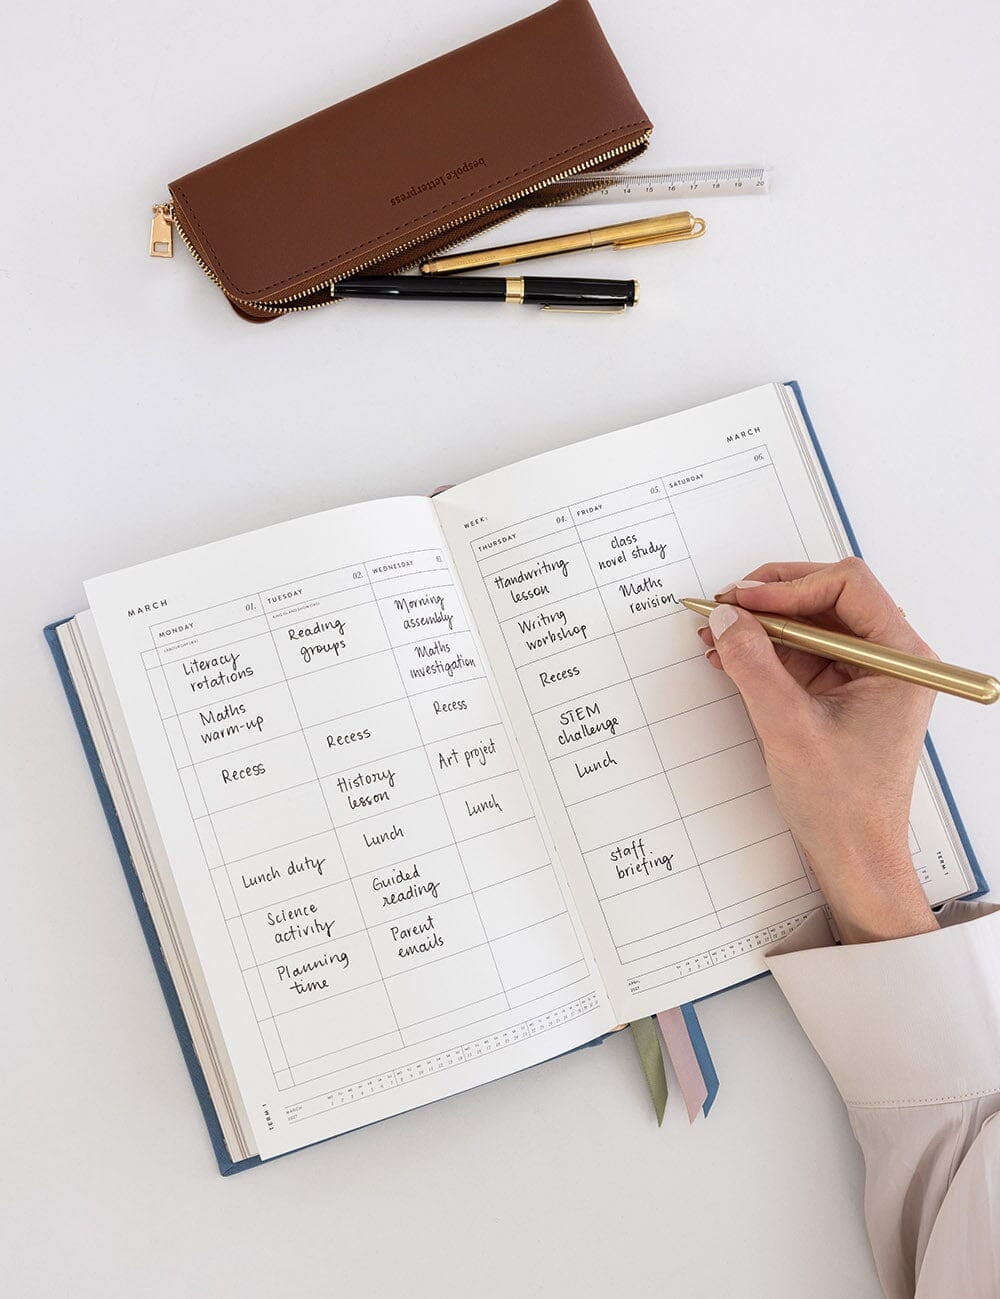 bespoke letterpress
13 14 15 16 17 18 19 20
MARCH
MONDAY
01.
LABOUR DAY (WA)
Literacy
rotations
Maths
warm-up
Recess
Lunch duty
Science
activity
Planning
time
TUESDAY
02.
Reading
groups
Recess
History
lesson
Lunch
Guided
reading
Parent
emails
WEDNESDAY
03.
Morning
assembly
Maths
investigation
Recess
Art project
Lunch
TERM 1
MARCH
2027
WEEK:
MARCH
THURSDAY
04.
Handwriting
lesson
Writing
workshop
Recess
STEM
challenge
Lunch
staff
briefing
FRIDAY
05.
class
novel study
Maths
revision
SATURDAY
06.
APRIL
2027
TERM 1